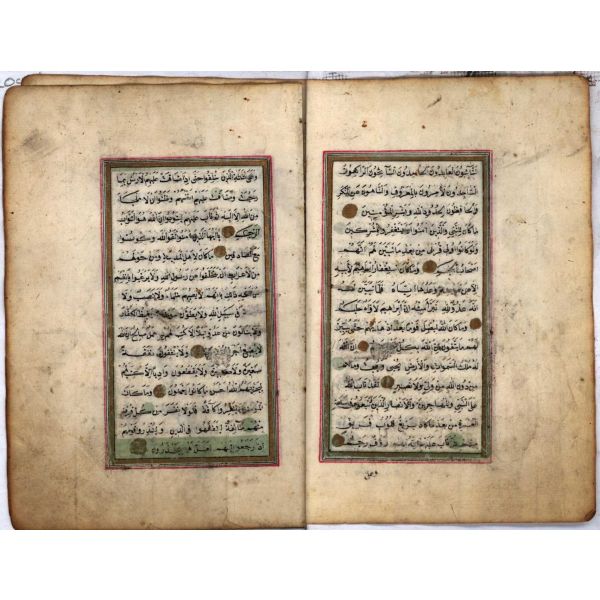 التائبون العابدون الحامدون السائحون الراكعون
الساجدون الآمرون بالمعروف والناهون عن المنكر
والحافظون لحدود الله وبشر المؤمنين
ما كان للنبي والذين آمنوا أن يستغفروا للمشركين
ولو كانوا أولي قربى من بعد ما تبين لهم أنهم
أصحاب الجحيم وما كان استغفار إبراهيم لأبيه
إلا عن موعدة وعدها إياه فلما تبين له
أنه عدو لله تبرأ منه إن إبراهيم لأواه حليم
وما كان الله ليضل قوما بعد إذ هداهم حتى يبين
لهم ما يتقون إن الله بكل شيء عليم إن الله
له ملك السموات والأرض يحيي ويميت وما لكم
من دون الله من ولي ولا نصير لقد تاب الله
على النبي والمهاجرين والأنصار الذين اتبعوه في ساعة
العسرة من بعد ما كاد يزيغ قلوب فريق
منهم ثم تاب عليهم إنه بهم رؤف رحيم
وعلى
وعلى الثلثة الذين خلفوا حتى إذا ضاقت عليهم الأرض بما
رحبت وضاقت عليهم أنفسهم وظنوا أن لا ملجأ
من الله إلا إليه ثم تاب عليهم ليتوبوا إن الله هو التواب
الرحيم يا أيها الذين آمنوا اتقوا الله وكونوا
مع الصادقين ما كان لأهل المدينة ومن حولهم
من الأعراب أن يتخلفوا عن رسول الله ولا يرغبوا بأنفسهم
عن نفسه ذلك بأنهم لا يصيبهم ظمأ ولا نصب ولا
مخمصة في سبيل الله ولا يطؤن موطئا يغيظ الكفار
ولا ينالون من عدو نيلا إلا كتب لهم به عمل صالح إن الله
لا يضيع أجر المحسنين ولا ينفقون نفقة
صغيرة ولا كبيرة ولا يقطعون واديا إلا كتب
لهم ليجزيهم الله أحسن ما كانوا يعملون وما كان
المؤمنون لينفروا كافة فلولا نفر من كل فرقة
منهم طائفة ليتفقهوا في الدين ولينذروا قومهم
إذا رجعوا إليهم لعلهم يحذرون